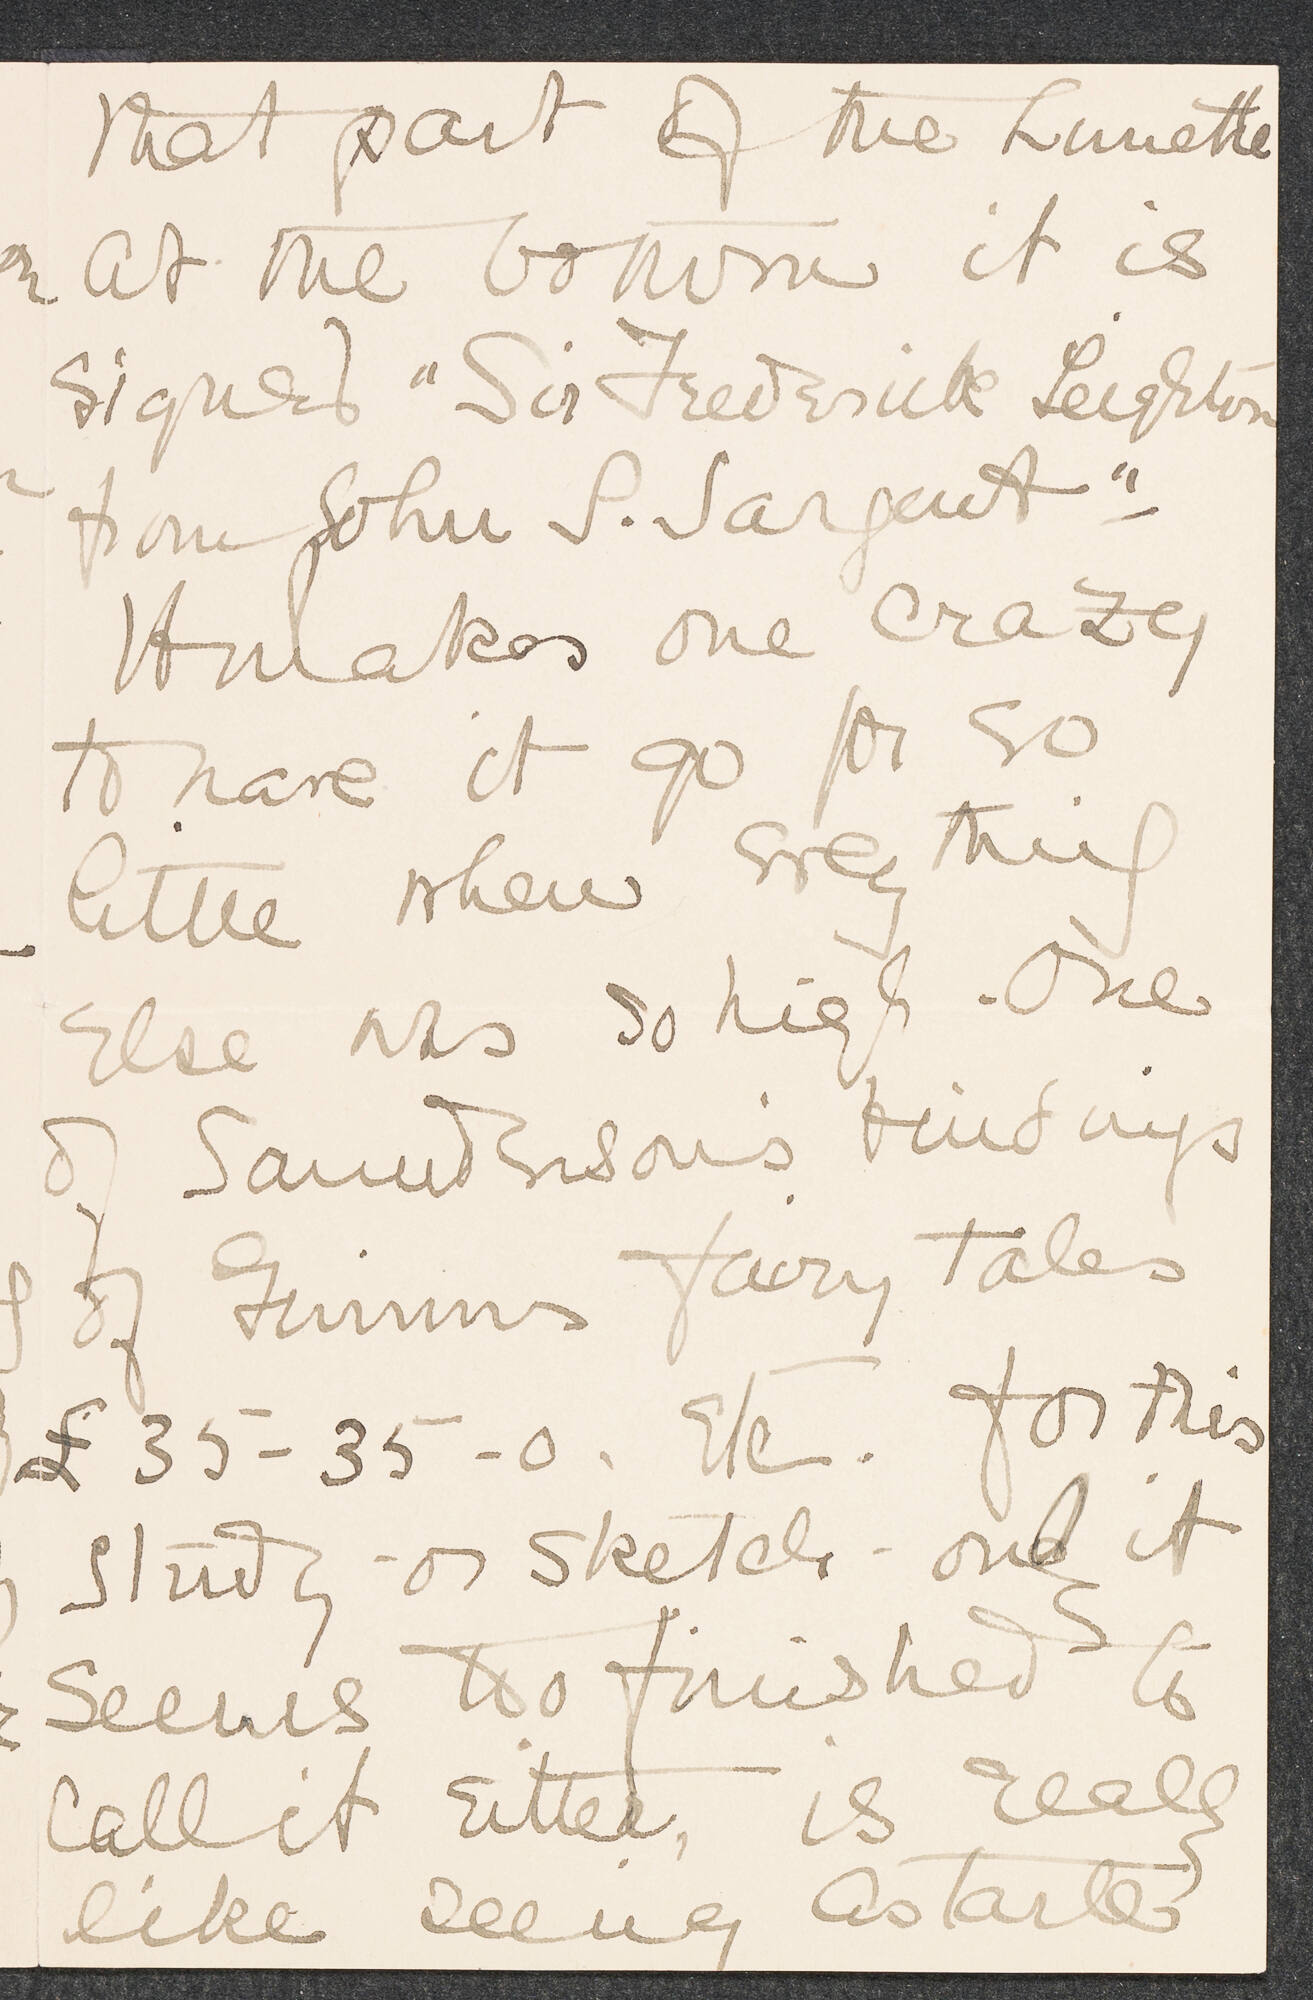 that part of the Lunette
at the bottom it is
signed "Sir Frederick Leighton
from John S. Sargent"-
It makes one crazy
to have it go for so
little when everything
Else was so high. One
of Saunderson's bindings
of Grimms fairy Tales
£ 35-35-0. Etc. for this
study - or sketch - only it
seems too finished to
call it Either, is really
like seeing Astarte